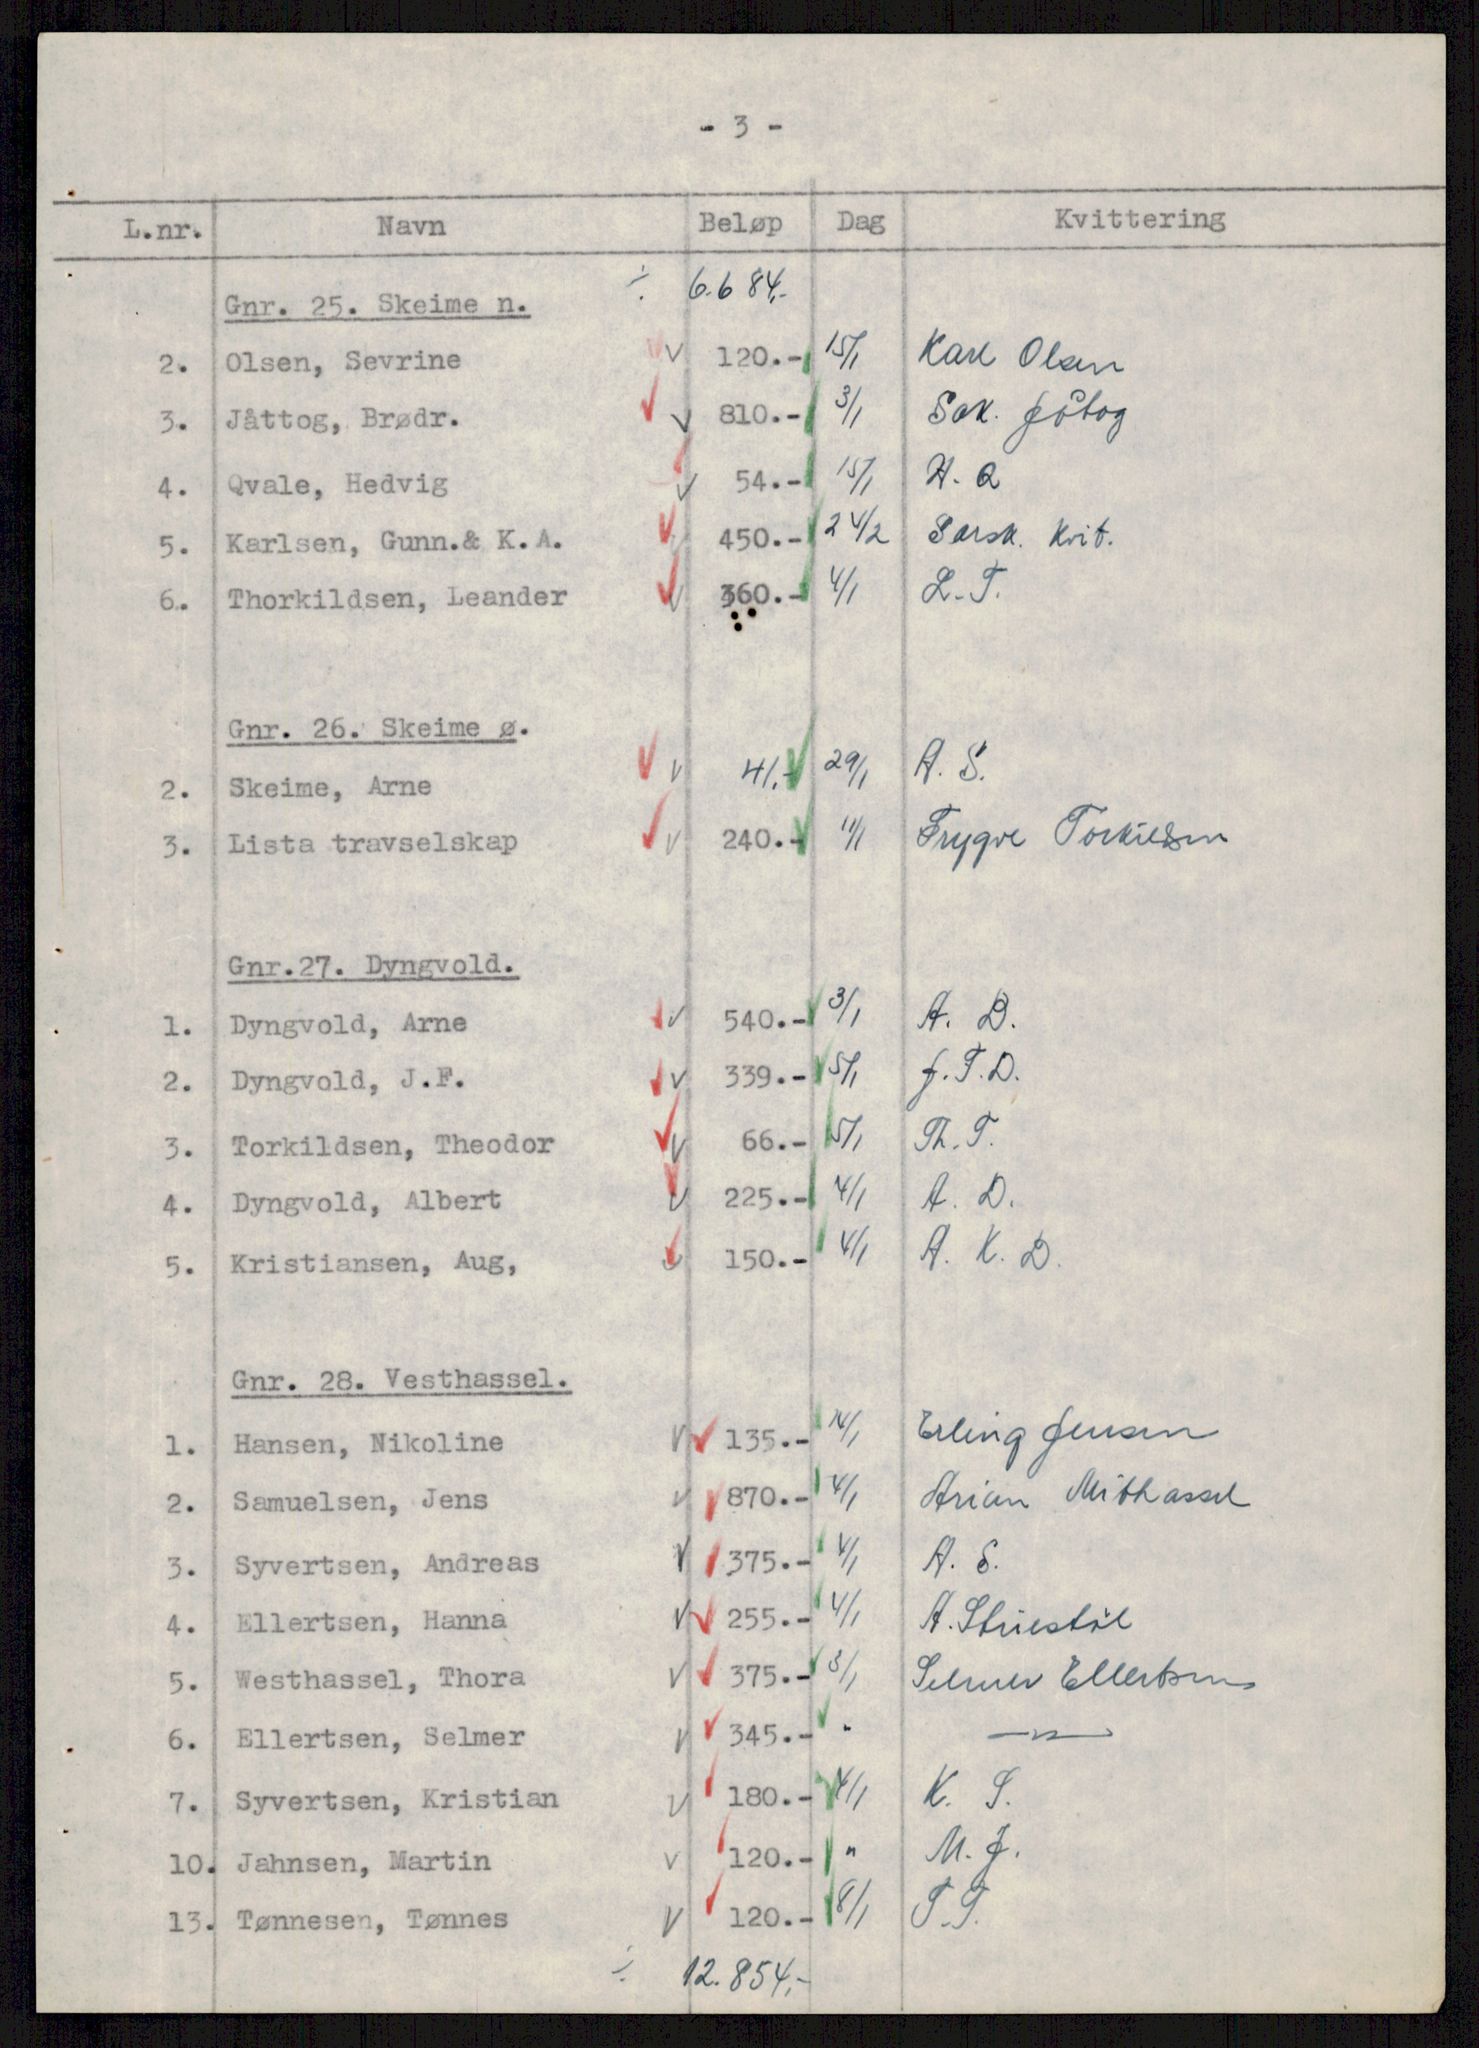 - 3 -
L.nr. Navn Beløp Dag Kvittering
÷ 6.684,-
Gnr. 25. Skeime n.
2. Olsen, Sevrine 120.- 15/1 Karl Olsen
3. Jåttog, Brødr. 810.- 3/1 Sak. Jåtog
4. Qvale, Hedvig 54.- 15/1 H. Q
5. Karlsen, Gunn.& K.A. 450.- 24/2 Særsk. Kvit.
6. Thorkildsen, Leander 360.- 4/1 L. T.
Gnr. 26. Skeime ø.
2. Skeime, Arne 41.- 29/1 A. S.
3. Lista travselskap 240.- 11/1 Trygve Torkildsen
Gnr.27. Dyngvold.
1. Dyngvold, Arne 540.- 3/1 A. D.
2. Dyngvold, J.F. 339.- 5/1 J. F. D.
3. Torkildsen, Theodor 66.- 5/1 Th. T.
4. Dyngvold, Albert 225.- 4/1 A. D.
5. Kristiansen, Aug, 150.- 4/1 A. K. D.
Gnr. 28. Vesthassel.
1. Hansen, Nikoline 135.- 14/1 Erling Jensen
2. Samuelsen, Jens 870.- 4/1 Arian Mithassel
3. Syvertsen, Andreas 375.- 4/1 A. S.
4. Ellertsen, Hanna 255.- 4/1 A.
5. Westhassel, Thora 375.- 3/1 Selmer Ellertsen
6. Ellertsen, Selmer 345.- " —"—
7. Syvertsen, Kristian 180.- 4/1 K. S.
10. Jahnsen, Martin 120.- " M. J.
13. Tønnesen, Tønnes 120.- 8/1 T. T.
÷ 12.854,-